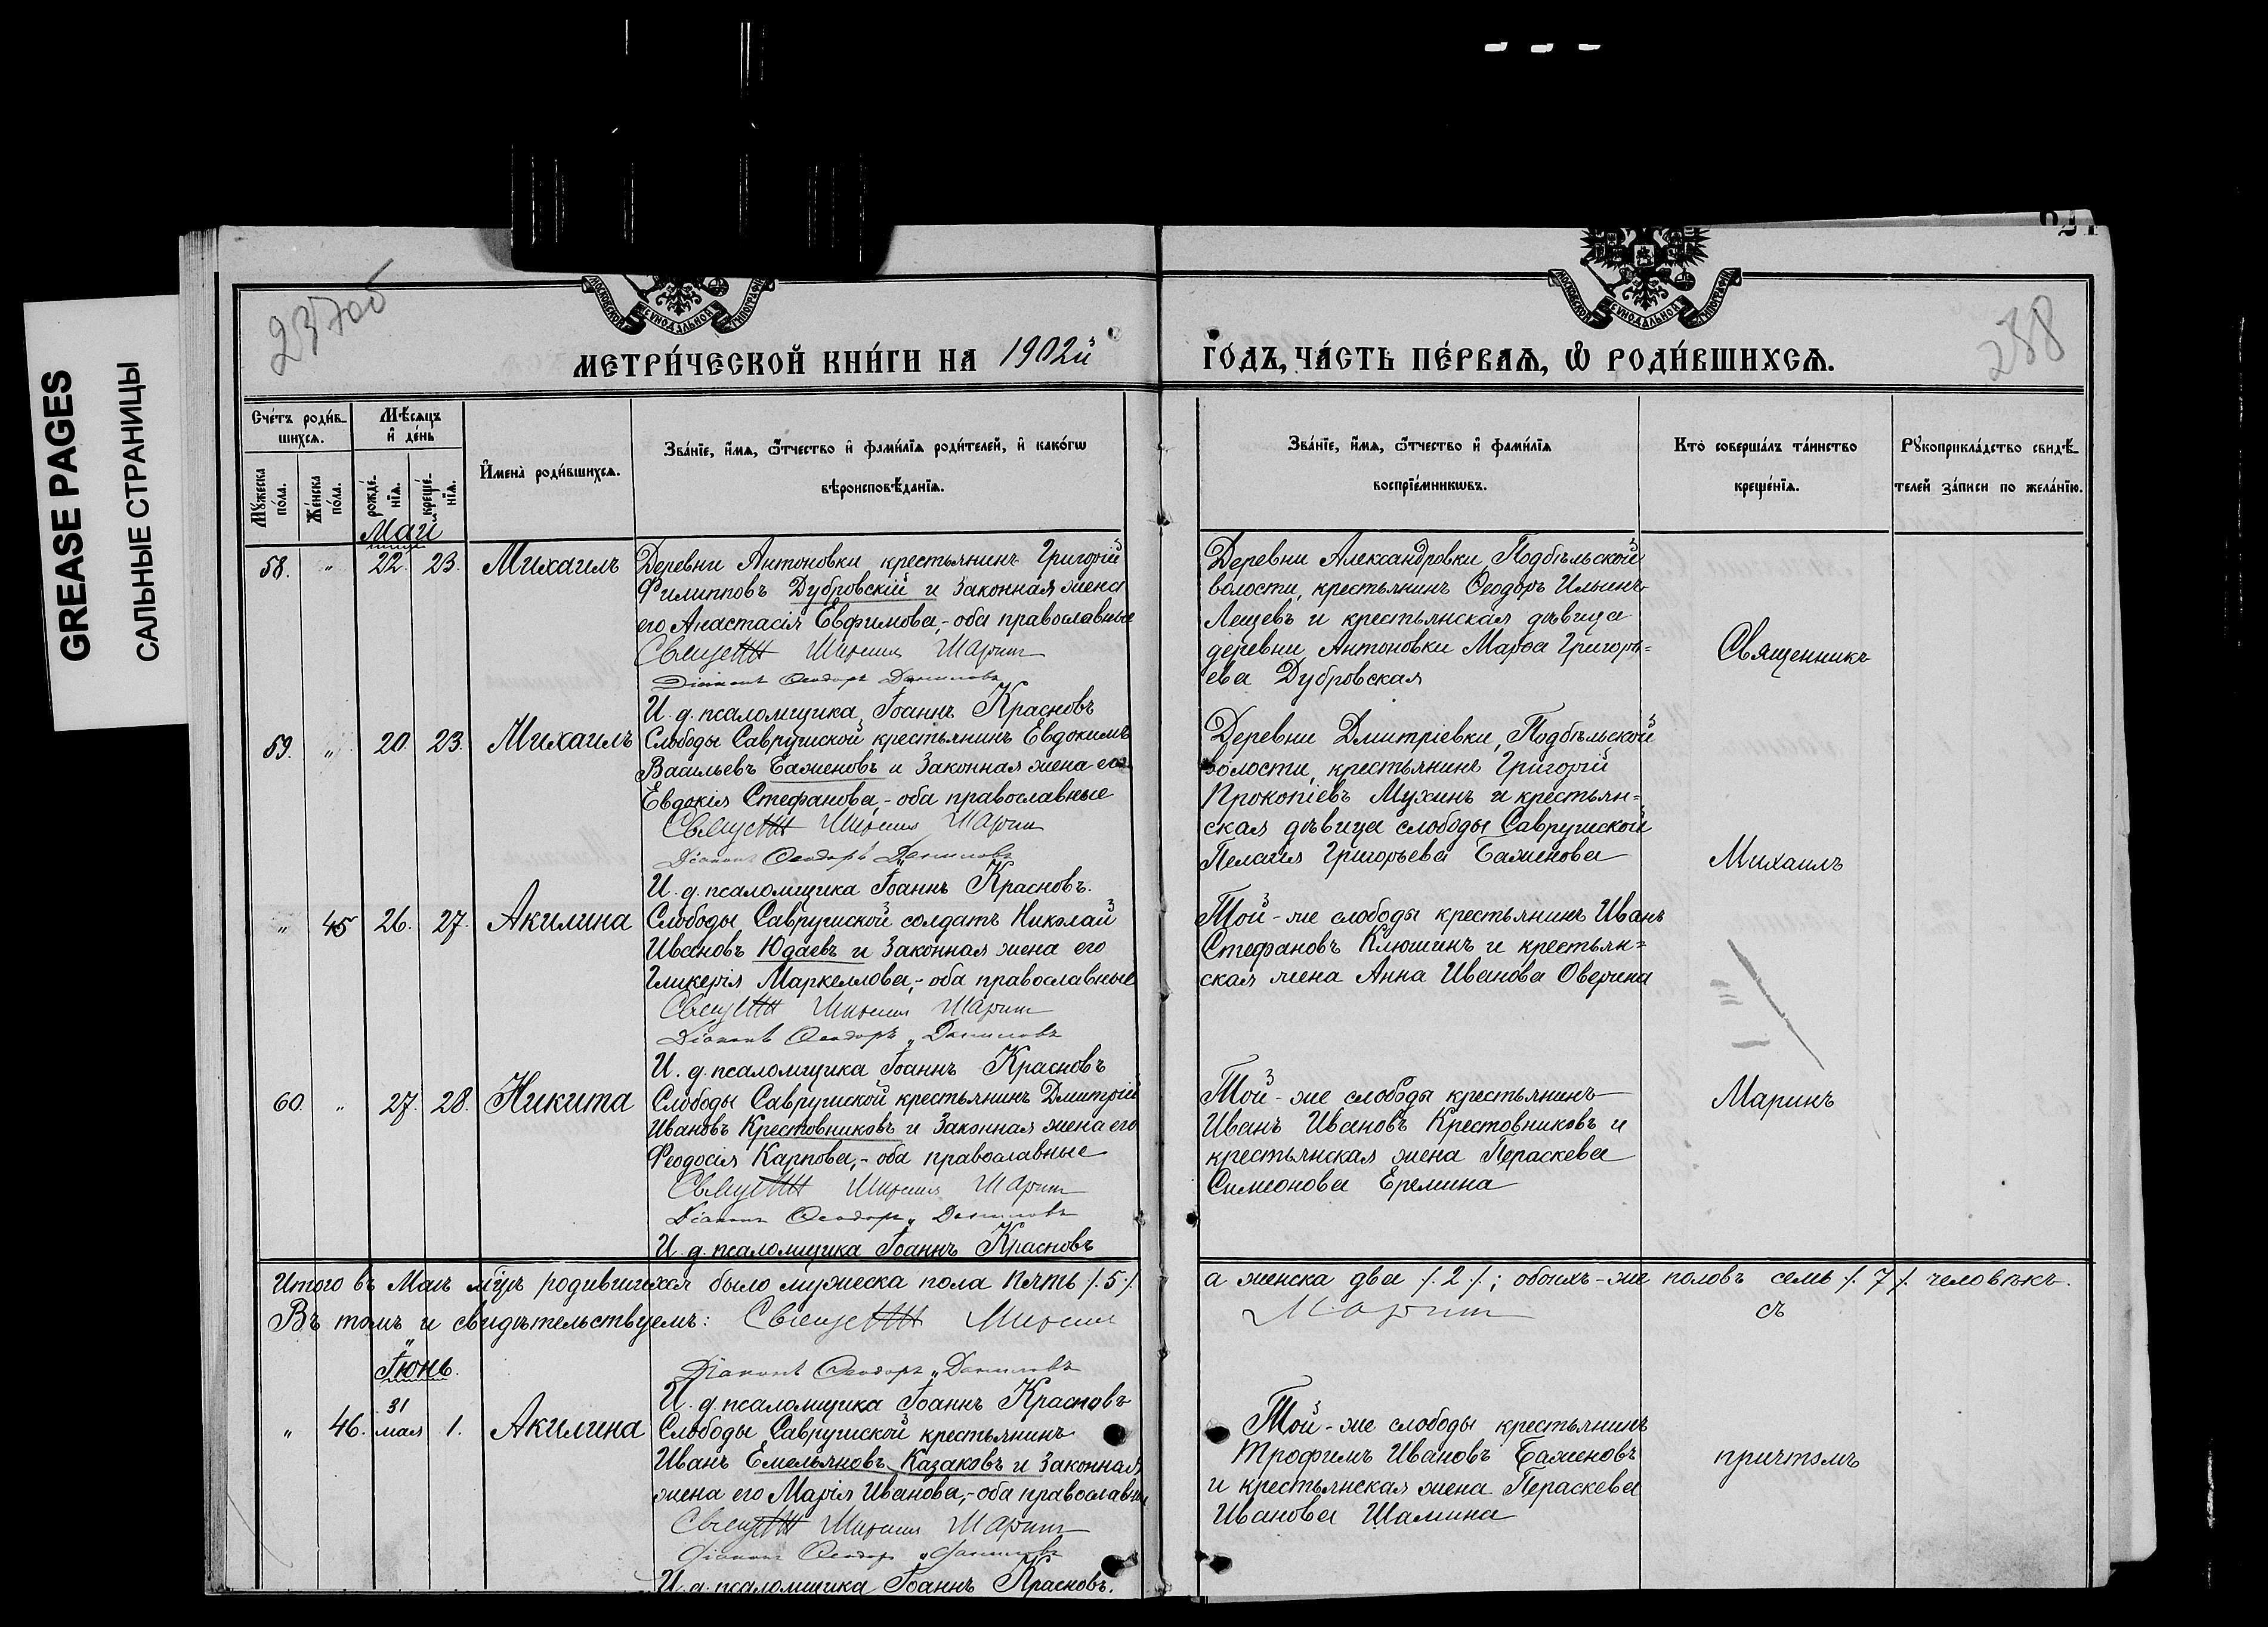 GREASE PAGES
САЛЬНЫЕ СТРАНИЦЫ
237об
238
МОСКОВСКОЙ СѴНОДАЛЬНОЙ ТИПОГРАФІИ
МОСКОВСКОЙ СѴНОДАЛЬНОЙ ТИПОГРАФІИ
МЕТРИ́ЧЕСКОЙ КНИ́ГИ НА 1902й
ГОДЪ, ЧА́СТЬ ПЕ́РВАѦ, Ѡ РОДИ́ВШИХСѦ.
Сче́тъ роди́в-
шихсѧ.
Мѣ́сѧцъ
и҆ де́нь
Му́жеска
по́ла.
Же́нска
по́ла.
рожде́-
нїѧ.
креще́-
нїѧ.
И҆мена̀ роди́вшихсѧ.
Зва́нїе, и҆́мѧ, ѻ҆́тчество и҆ фами́лїѧ роди́телей, и҆ како́гѡ
вѣроисповѣ́данїѧ.
Зва́нїе, и҆́мѧ, ѻ҆́тчество и҆ фами́лїѧ
воспрїе́мникѡвъ.
Кто̀ соверша́лъ та́инство
креще́нїѧ.
Рꙋкоприкла́дство свидѣ́-
телей за́писи по жела́нїю.
Май
58. " 22. 23. Михаилъ
Деревни Антоновки крестьянинъ Григорій
Филипповъ Дубровскій и законная жена
его Анастасія Евфимова,- оба православные
Священ Михаилъ Маринъ
Діаконъ Ѳеодоръ Даниловъ
И. д. псаломщика Іоаннъ Красновъ
Деревни Александровки, Подбѣльской
волости, крестьянинъ Ѳеодоръ Ильинъ
Лещевъ и крестьянская дѣвица
деревни Антоновки Марѳа Григорь=
ева Дубровская
Священникъ
59. " 20. 23. Михаилъ
Слободы Савrушской крестьянинъ Евдокимъ
Васильевъ Баженовъ и законная жена его
Евдокія Стефанова,- оба православные
Священ Михаилъ Маринъ
Діаконъ Ѳеодоръ Даниловъ
И. д. псаломщика Іоаннъ Красновъ.
Деревни Дмитріевки, Подбѣльской
волости, крестьянинъ Григорій
Прокопіевъ Мухинъ и крестьян=
ская дѣвица слободы Саврушской
Пелагія Григорьева Баженова
Михаилъ
" 45 26. 27. Акилина
Слободы Саврушской солдатъ Николай
Ивановъ Юдаевъ и законная жена его
Гликерія Маркеллова,- оба православные
Священ Михаилъ Маринъ
Діаконъ Ѳеодоръ Даниловъ
И. д. псаломщика Іоаннъ Красновъ
Той-же слободы крестьянинъ Иванъ
Стефановъ Клюшинъ и крестьян=
ская жена Анна Иванова Оверина
60. " 27. 28. Никита
Слободы Саврушской крестьянинъ Дмитрій
Ивановъ Крестовниковъ и законная жена его
Феодосія Карпова,- оба православные
Священ Михаилъ Маринъ
Діаконъ Ѳеодоръ Даниловъ
И. д. псаломщика Іоаннъ Красновъ
Той-же слободы крестьянинъ
Иванъ Ивановъ Крестовниковъ и
крестьянская жена Параскева
Симеонова Еремина
Маринъ
Итого въ Маѣ мцѣ родившихся было мужеска пола пять /.5./. а женска два /.2./.; обоихъ-же половъ семь /.7./. человѣкъ.
Въ томъ и свидѣтельствуемъ: Священ Михаилъ Маринъ
съ
Діаконъ Ѳеодоръ Даниловъ
И. д. псаломщика Іоаннъ Красновъ
Іюнь.
" 46. 31 мая 1. Акилина
Слободы Саврушской крестьянинъ
Иванъ Емельяновъ Казаковъ и законная
жена его Марія Иванова,- оба православны
Священ Михаилъ Маринъ
Діаконъ Ѳеодоръ Даниловъ
И. д. псаломщика Іоаннъ Красновъ.
Той-же слободы крестьянинъ
Трофимъ Ивановъ Баженовъ
и крестьянская жена Параскева
Иванова Шамина
причтомъ